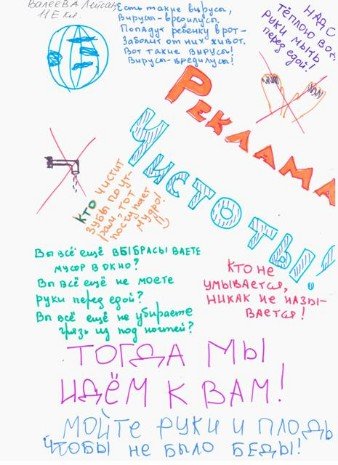 Валеева Лейсан
Есть такие вирусы,
Вирусы-вредилусы.
Попадут ребёнку в рот-
Заболит от них живот.
Вот такие вирусы!
Вирусы-вредилусы!
НАДО С
ТЁПЛОЮ ВОД
РУКИ МЫТЬ
ПЕРЕД ЕДОЙ!
РЕКЛАМА
ЧИСТОТЫ!
КТО ЧИСТИТ
ЗУБЫ ПО УТ-
РАМ, ТОТ
ПОСТУПАЕТ
МУДРО!
Вы всё ещё ВЫБРАСЫВАЕТЕ
МУСОР В ОКНО?
Вы всё ещё не моете
руки перед едой?
Вы всё ещё не убираете
грязь из под ногтей?
КТО НЕ
УМЫВАЕТСЯ,
НИКАК НЕ НАЗЫ-
ВАЕТСЯ!
ТОГДА МЫ
ИДЁМ К ВАМ!
МОЙТЕ РУКИ И ПЛОДЫ
ЧТОБЫ НЕ БЫЛО БЕДЫ!